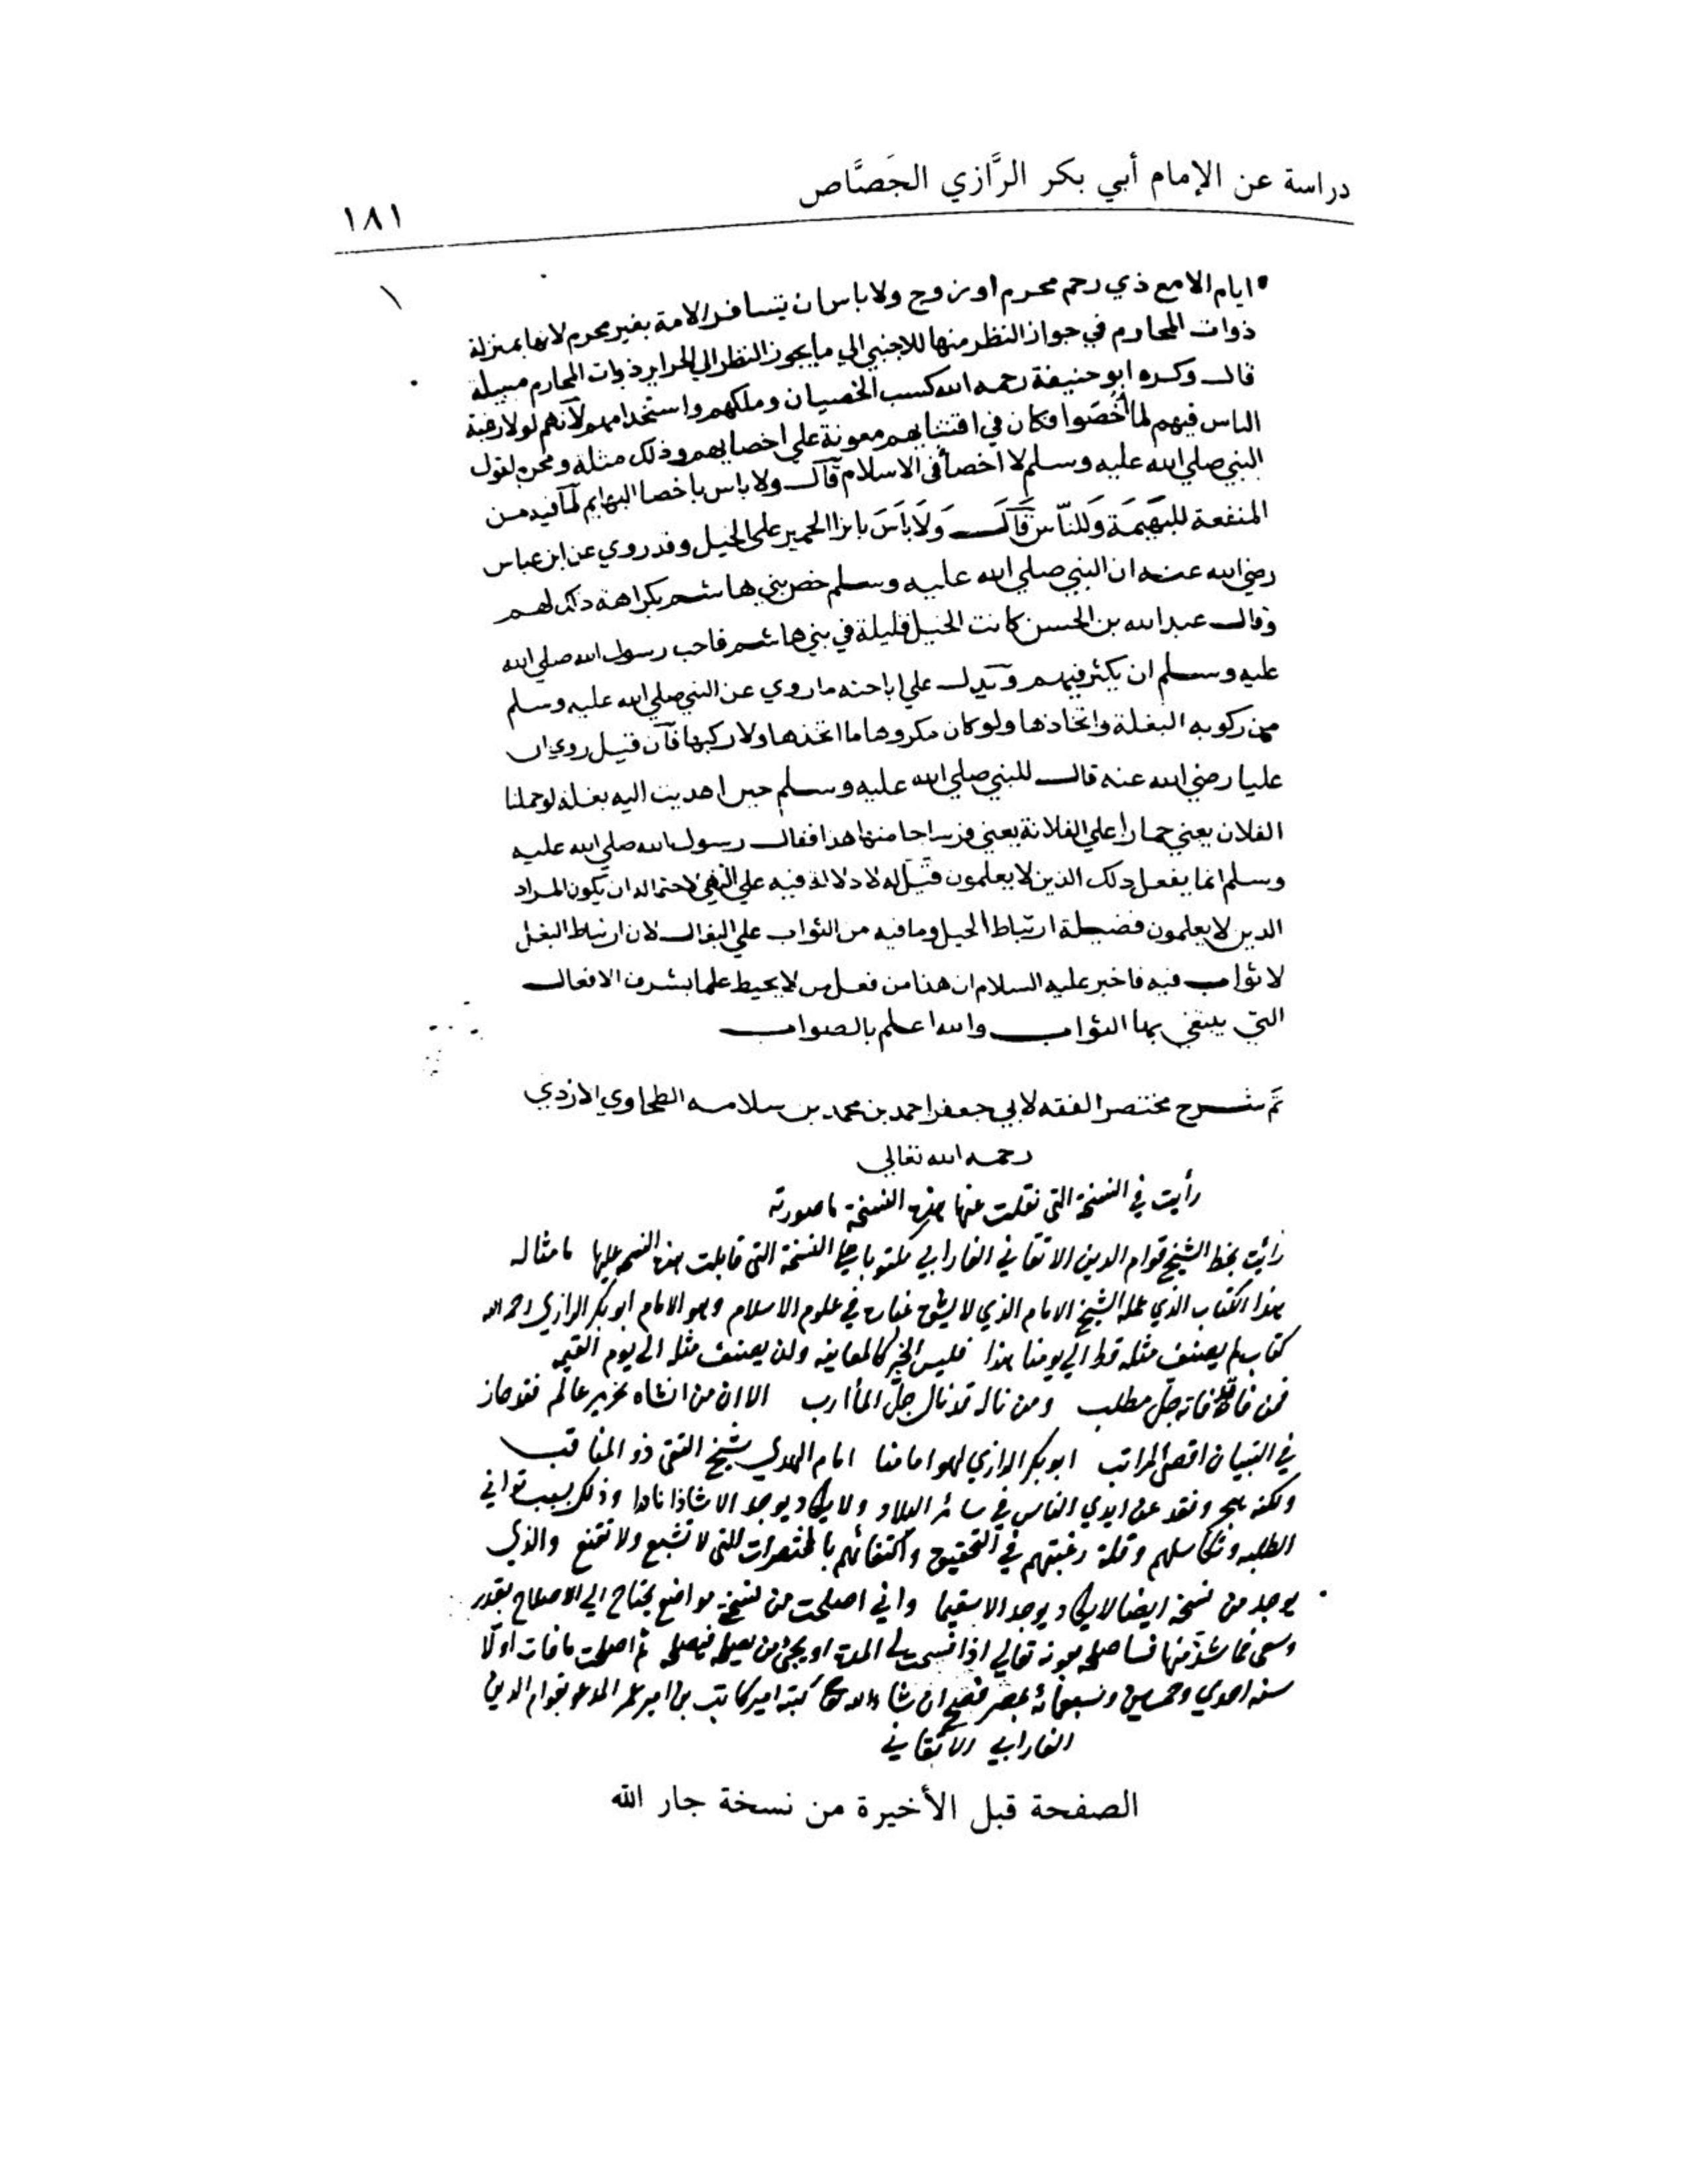 دراسة عن الإمام أبي بكر الرَّازي الجَصَّاص
١٨١
ايام الا مع ذي رحم محرم او زوج ولا باس ان تسافر الامة بغير محرم لانها بمنزلة
ذوات المحارم في جواز النظر منها للاجنبي الي ما يجوز النظر الي الحراير ذوات المحارم مسيلة
قال وكره ابو حنيفة رحمه الله كسب الخصيان وملكهم واستخدامهم لانهم لولا رغبة
الناس فيهم لما أخصوا فكان في اقتنايهم معونة علي اخصايهم وذلك مثلة ومحرم لقول
النبي صلي الله عليه وسلم لا اخصأ في الاسلام قال ولا باس باخصا البهايم لما فيه من
المنفعة للبهيمة وللناس قال ولا بأس بانزا الحمير علي الخيل وقد روي عن ابن عباس
رضي الله عنه ان النبي صلي الله عليه وسلم خص بني هاشم بكراهة ذلك لهم
وقال عبد الله بن الحسن كانت الخيل قليلة في بني هاشم فاحب رسول الله صلي الله
عليه وسلم ان يكثر فيهم ويدل علي اباحته ما روي عن النبي صلي الله عليه وسلم
من ركوبه البغلة واتخاذها ولو كان مكروها ما اتخذها ولا ركبها فان قيل روي ان
عليا رضي الله عنه قال للنبي صلي الله عليه وسلم حين اهديت اليه بغلة لو حملنا
الفلان يعني حمارا علي الفلانة يعني فرسا جا منها هذا فقال رسول الله صلي الله عليه
وسلم انما يفعل ذلك الذين لا يعلمون قيل له لا دلالة فيه علي النهي لاحتماله ان يكون المراد
الذين لا يعلمون فضيلة ارتباط الخيل وما فيه من الثواب علي البغال لان ارتباط البغل
لا ثواب فيه فاخبر عليه السلام ان هذا من فعل من لا يحيط علما بشرف الافعال
التي يبتغي بها الثواب والله اعلم بالصواب
تم شرح مختصر الفقه لابي جعفر احمد بن محمد بن سلامه الطحاوي الازدي
رحمه الله تعالي
رأيت في النسخة التي نقلت عنها هذه النسخة ما صورته
رائيت بخط الشيخ قوام الدين الاتقاني الفارابي مكتوبا علي النسخة التي قابلت هذه النسخه عليها ما مثاله
هذا الكتاب الذي عمله الشيخ الامام الذي لا يشق غباره في علوم الاسلام وهو الامام ابو بكر الرازي رحمه الله
كتاب لم يصنف مثله قط الي يومنا هذا فليس الخبر كالمعاينه ولن يصنف مثله الي يوم القيمه
فمن فاته فاته جل مطلب ومن ناله قد نال جل المأارب الا ان من انشاه نحرير عالم فقد حاز
في التبيان اقصي المراتب ابو بكر الرازي لهو امامنا امام الهدي شيخ التقي ذو المناقب
ولكنه هجر وفقد عن ايدي الناس في سائر البلاد ولا يكاد يوجد الا شاذا نادرا وذلك بسبب تواني
الطلبه وتكاسلهم وقلة رغبتهم في التحقيق واكتفائهم بالمختصرات التي لا تشبع ولا تقنع والذي
يوجد من نسخه ايضا لا يكاد يوجد الا سقيما واني اصلحت من نسخته مواضع يحتاج الي الاصلاح بقدر
وسعي فما شذ منها فساصلحه بعونه تعالي اذا فسحت لي المدة او يجئ من يصلحه فيصلحه ثم اصلحت ما فات اولا
سنه احدي وخمسين وسبعمائة بمصر فصح ان شاء الله كتبه امير كاتب بن امير عمر المدعو بقوام الدين
الفارابي الاتقاني
الصفحة قبل الأخيرة من نسخة جار الله